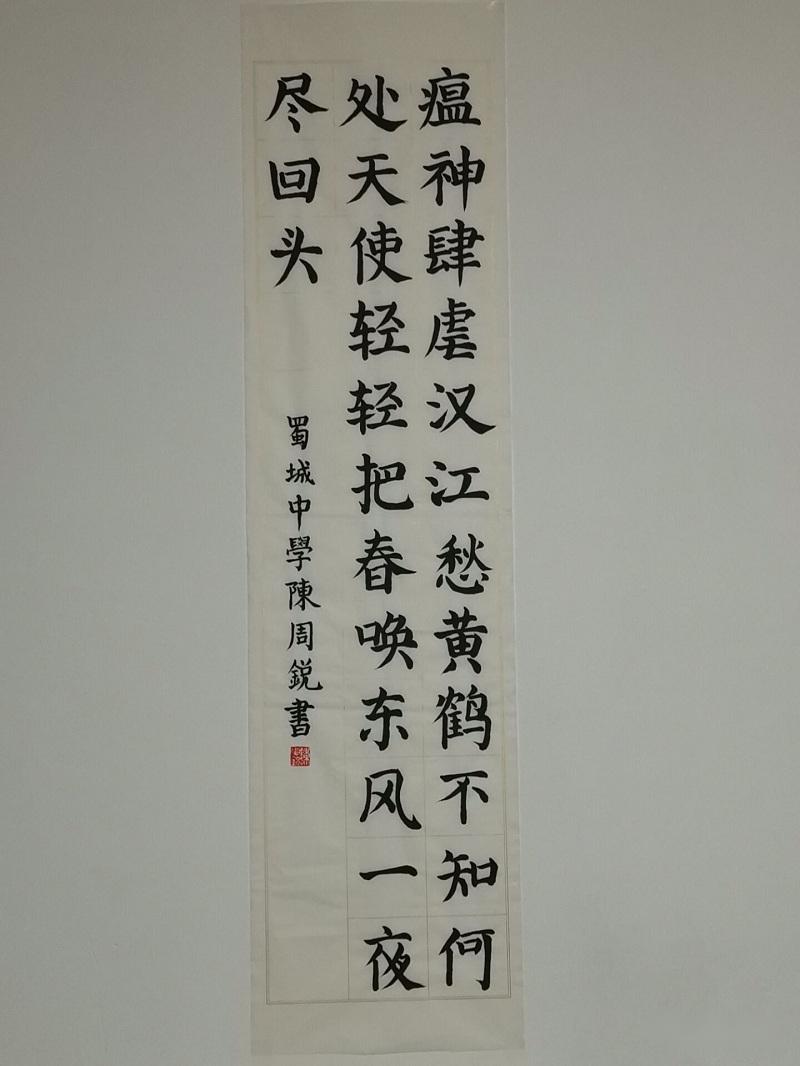 瘟神肆虐汉江愁黄鹤不知何
处天使轻轻把春唤东风一夜
尽回头
蜀城中學陳周銳書